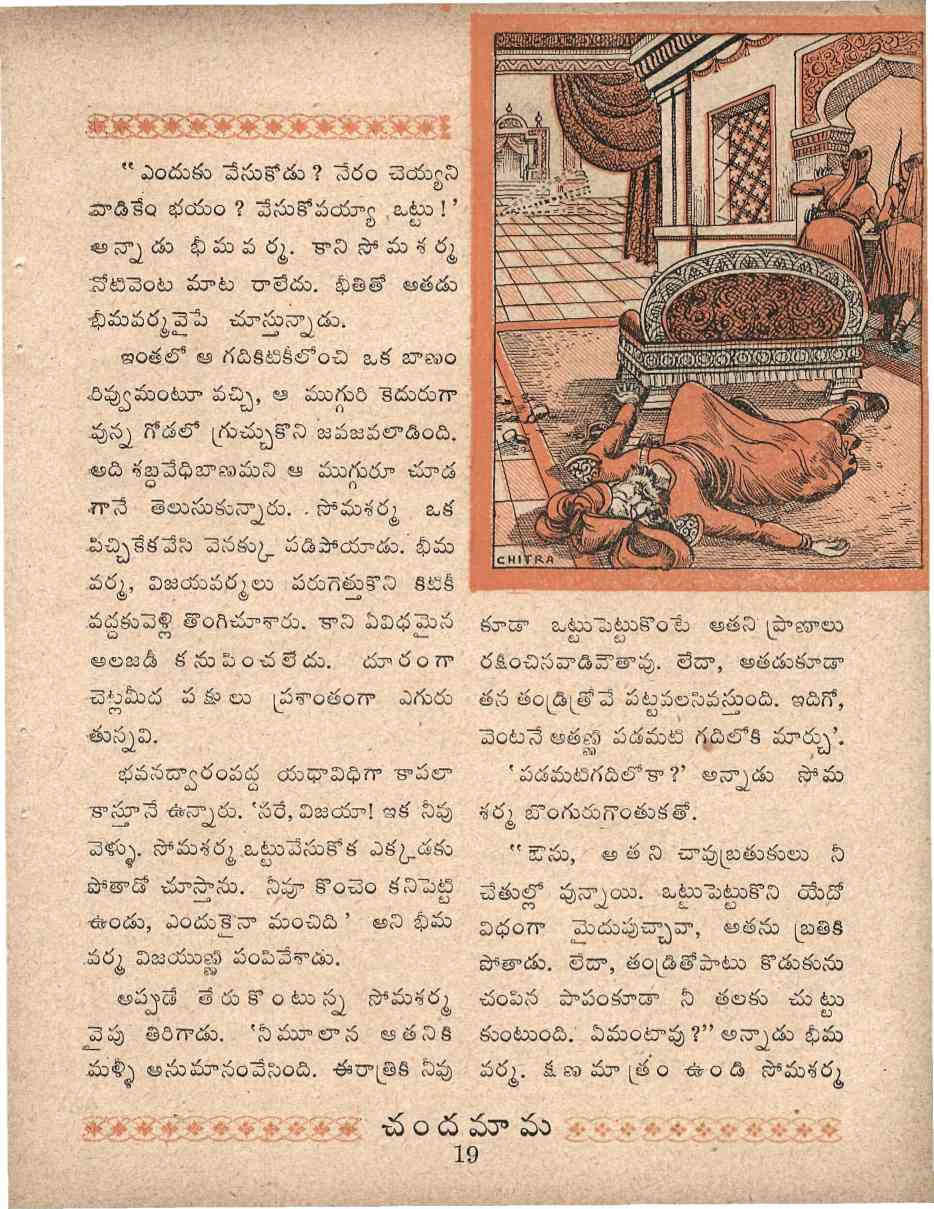 “ఎందుకు వేసుకోడు? నేరం చెయ్యని
వాడికేం భయం? వేసుకోవయ్యా ఒట్టు!’
అన్నాడు భీమవర్మ. కాని సోమశర్మ
నోటివెంట మాట రాలేదు. భీతితో అతడు
భీమవర్మవైపే చూస్తున్నాడు.
ఇంతలో ఆ గదికిటికీలోంచి ఒక బాణం
రివ్వుమంటూ వచ్చి, ఆ ముగ్గురి కెదురుగా
వున్న గోడలో గ్రుచ్చుకొని జవజవలాడింది.
అది శబ్దవేధిబాణమని ఆ ముగ్గురూ చూడ
గానే తెలుసుకున్నారు. సోమశర్మ ఒక
పిచ్చికేకవేసి వెనక్కు పడిపోయాడు. భీమ
వర్మ, విజయవర్మలు పరుగెత్తుకొని కిటికీ
వద్దకువెళ్లి తొంగిచూశారు. కాని ఏవిధమైన
అలజడీ కనుపించలేదు. దూరంగా
చెట్లమీద పక్షులు ప్రశాంతంగా ఎగురు
తున్నవి.
భవనద్వారంవద్ద యధావిధిగా కాపలా
కాస్తూనే ఉన్నారు. ‘సరే, విజయా! ఇక నీవు
వెళ్ళు. సోమశర్మ ఒట్టువేసుకోక ఎక్కడకు
పోతాడో చూస్తాను. నీవూ కొంచెం కనిపెట్టి
ఉండు, ఎందుకైనా మంచిది’ అని భీమ
వర్మ విజయుణ్ణి పంపివేశాడు.
అప్పుడే తేరుకొంటున్న సోమశర్మ
వైపు తిరిగాడు. ‘నీమూలాన ఆతనికి
మళ్ళీ అనుమానంవేసింది. ఈరాత్రికి నీవు
CHITRA
కూడా ఒట్టుపెట్టుకొంటే అతని ప్రాణాలు
రక్షించినవాడివౌతావు. లేదా, అతడుకూడా
తన తండ్రిత్రోవే పట్టవలసివస్తుంది. ఇదిగో,
వెంటనే ఆతణ్ణి పడమటి గదిలోకి మార్చు’.
‘పడమటిగదిలోకా?’ అన్నాడు సోమ
శర్మ బొంగురుగొంతుకతో.
“ఔను, అతని చావుబ్రతుకులు నీ
చేతుల్లో వున్నాయి. ఒట్టుపెట్టుకొని యేదో
విధంగా మైదుపుచ్చావా, అతను బ్రతికి
పోతాడు. లేదా, తండ్రితోపాటు కొడుకును
చంపిన పాపంకూడా నీ తలకు చుట్టు
కుంటుంది. ఏమంటావు?” అన్నాడు భీమ
వర్మ. క్షణమాత్రం ఉండి సోమశర్మ
చందమామ
19